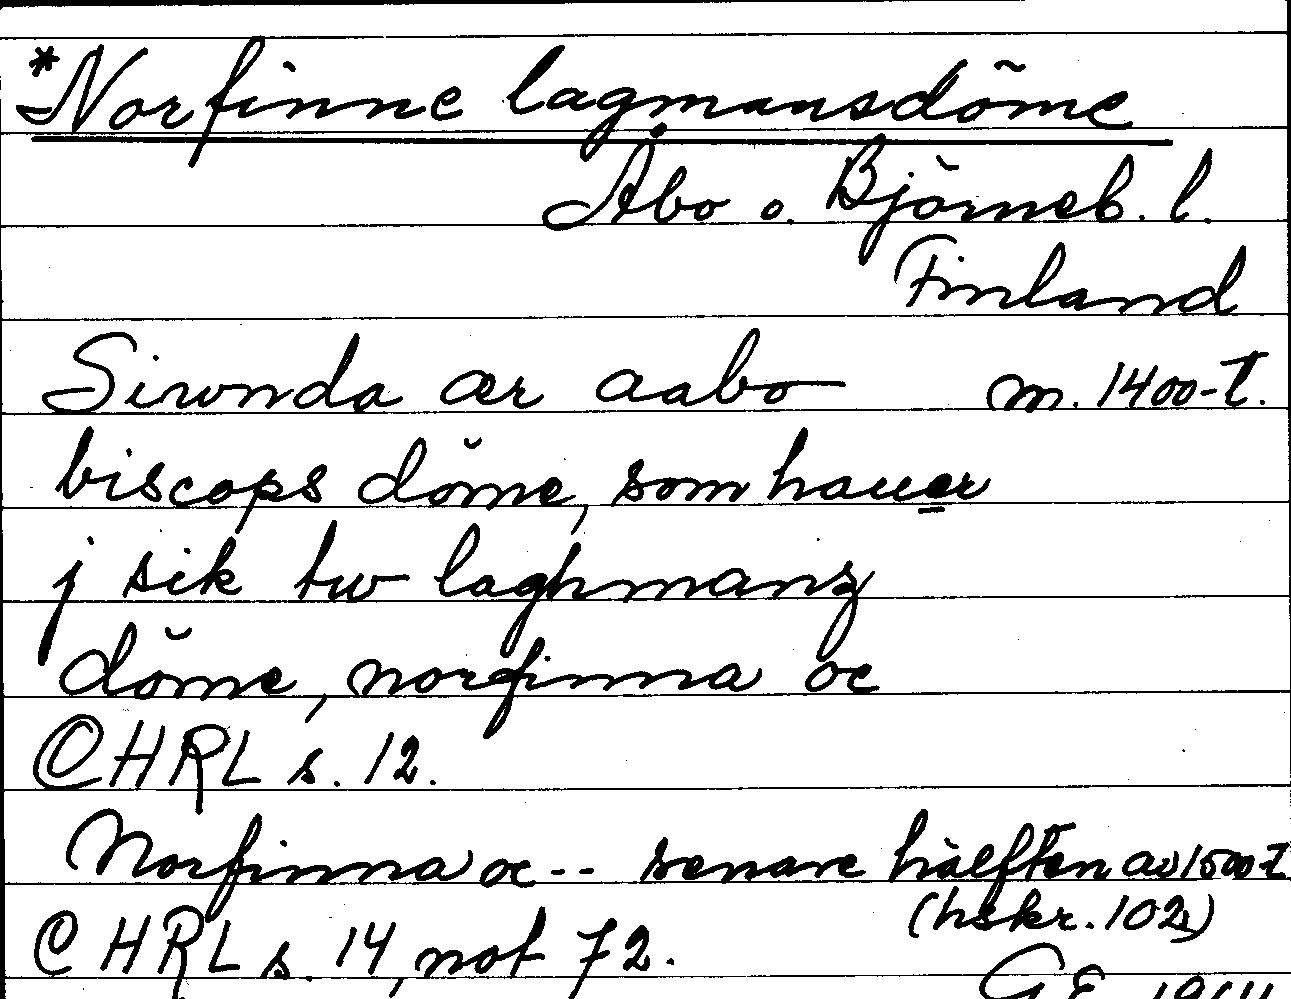 *Norfinne lagmansdöme
Åbo o. Björneb. l.
Finland
Siwnda ær aabo m. 1400-t.
biscops döme, som hauer
j sik tw laghmanz
döme, norfinna oc
CHRL s. 12.
Norfinna oc -- senare hälften av 1500-t
(hskr. 102)
CHRL s. 14, not 72.
G.E.